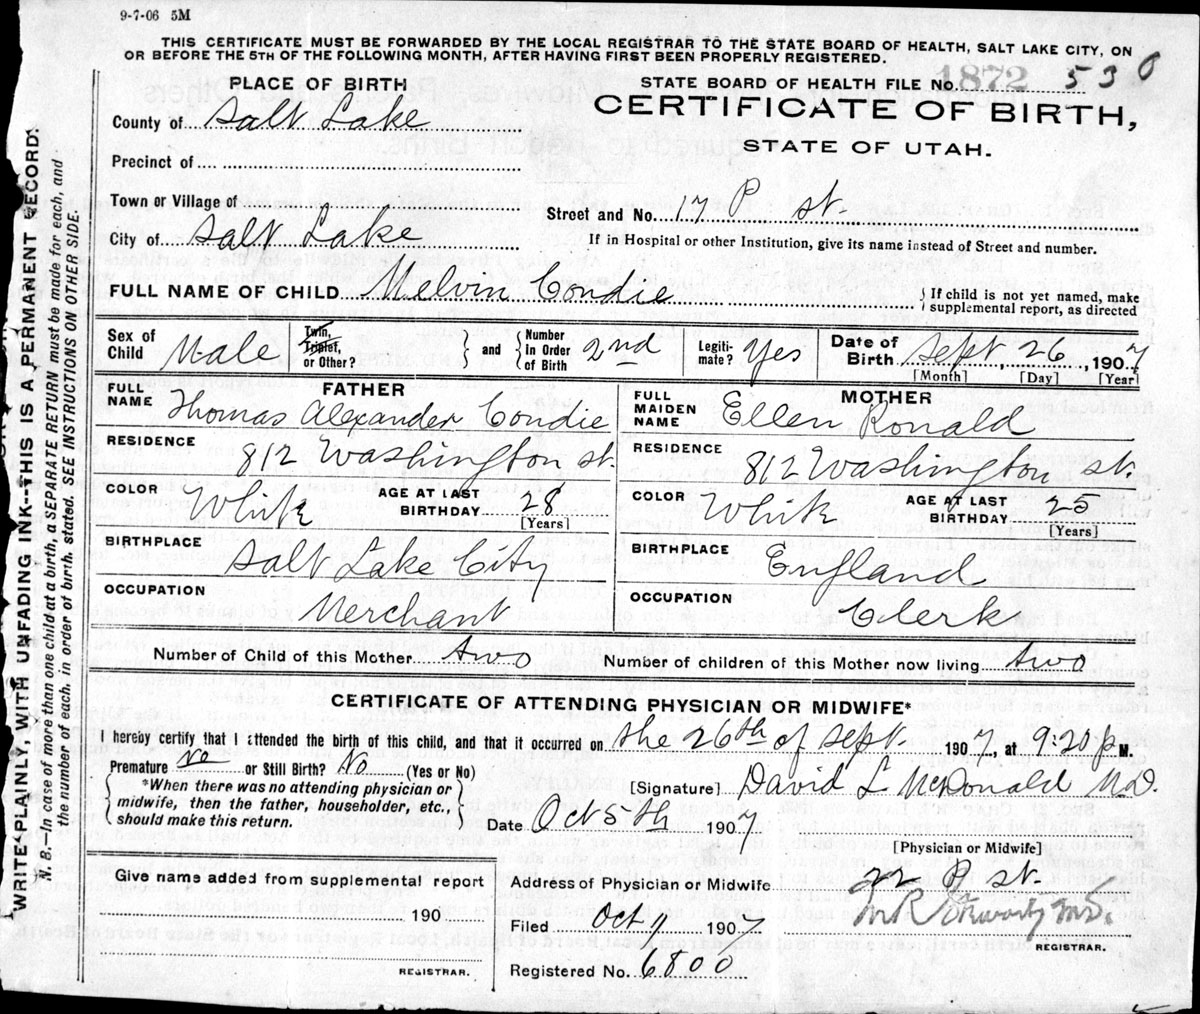 9-7-06 5M
THIS CERTIFICATE MUST BE FORWARDED BY THE LOCAL REGISTRAR TO THE STATE BOARD OF HEALTH, SALT LAKE CITY, ON
OR BEFORE THE 5TH OF THE FOLLOWING MONTH, AFTER HAVING FIRST BEEN PROPERLY REGISTERED.
PLACE OF BIRTH
STATE BOARD OF HEALTH FILE No. 1872 530
County of Salt Lake
CERTIFICATE OF BIRTH,
STATE OF UTAH.
Precinct of
Town or Village of
Street and No. 17 P st.
City of Salt Lake
If in Hospital or other Institution, give its name instead of Street and number.
FULL NAME OF CHILD Melvin Condie
} If child is not yet named, make
supplemental report, as directed
Sex of Child Male
Twin, Triplet, or Other?
} and { Number in Order of Birth 2nd
Legiti- mate? Yes
Date of Birth Sept 26, 1907
[Month] [Day] [Year]
FATHER
FULL NAME Thomas Alexander Condie
RESIDENCE 812 Washington st.
COLOR White
AGE AT LAST BIRTHDAY 28
[Years]
BIRTHPLACE Salt Lake City
OCCUPATION Merchant
MOTHER
FULL MAIDEN NAME Ellen Ronald
RESIDENCE 812 Washington st.
COLOR White
AGE AT LAST BIRTHDAY 25
[Years]
BIRTHPLACE England
OCCUPATION Clerk
Number of Child of this Mother two
Number of children of this Mother now living two
CERTIFICATE OF ATTENDING PHYSICIAN OR MIDWIFE*
I hereby certify that I attended the birth of this child, and that it occurred on the 26th of Sept. 1907, at 9:20 P M.
Premature No or Still Birth? No (Yes or No)
{ *When there was no attending physician or
midwife, then the father, householder, etc.,
should make this return. }
[Signature] David L McDonald M.D.
Date Oct 5th 1907
[Physician or Midwife]
Give name added from supplemental report
190
REGISTRAR.
Address of Physician or Midwife 22 P st.
Filed Oct 7 1907
M R Stewart M.D.
REGISTRAR.
Registered No. 6800
WRITE PLAINLY, WITH UNFADING INK--THIS IS A PERMANENT RECORD.
N. B.—In case of more than one child at a birth, a SEPARATE RETURN must be made for each, and
the number of each, in order of birth, stated. SEE INSTRUCTIONS ON OTHER SIDE.